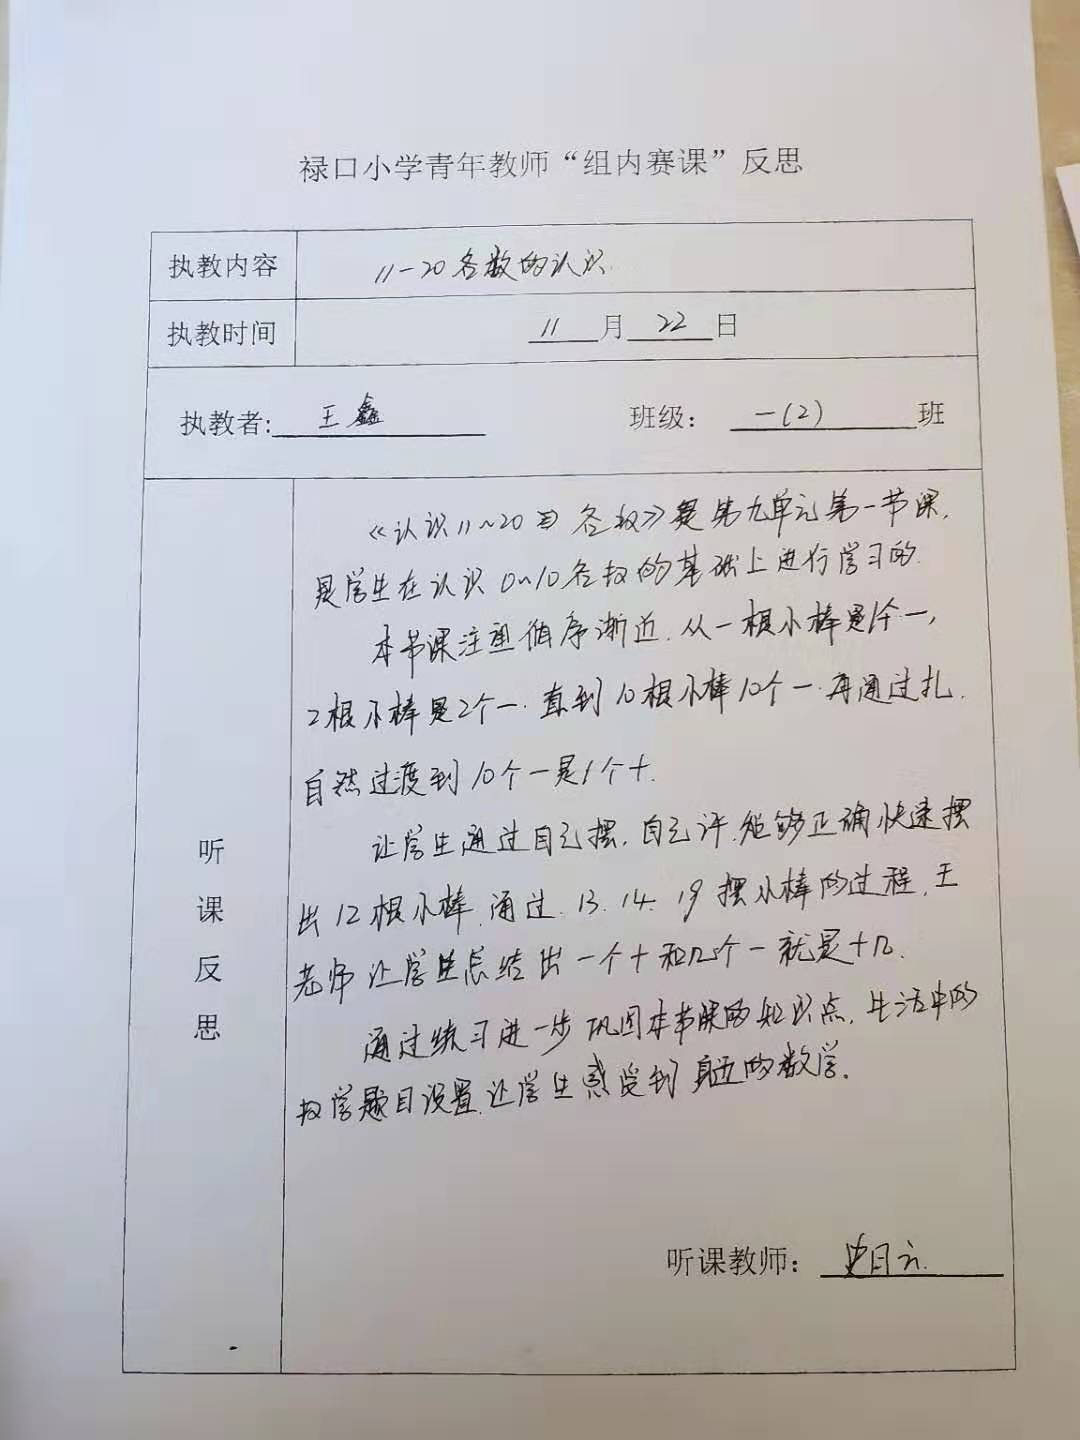 禄口小学青年教师“组内赛课”反思
执教内容 11-20各数的认识.
执教时间 11月22日
执教者: 王鑫 班级: 一(2)班
听课反思
《认识11~20各数》是第九单元第一节课,
是学生在认识0~10各数的基础上进行学习的.
本节课注重循序渐近.从一根小棒是1个一,
2根小棒是2个一.直到10根小棒10个一.再通过扎.
自然过渡到10个一是1个十.
让学生通过自己摆.自己许.能够正确快速摆
出12根小棒.通过.13.14.19摆小棒的过程.王
老师让学生总结出一个十和几个一就是十几.
通过练习进一步巩固本节课的知识点.生活中的
数学题目设置.让学生感受到真正的数学.
听课教师: 史日